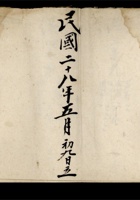 民國二十八年五月初九日立